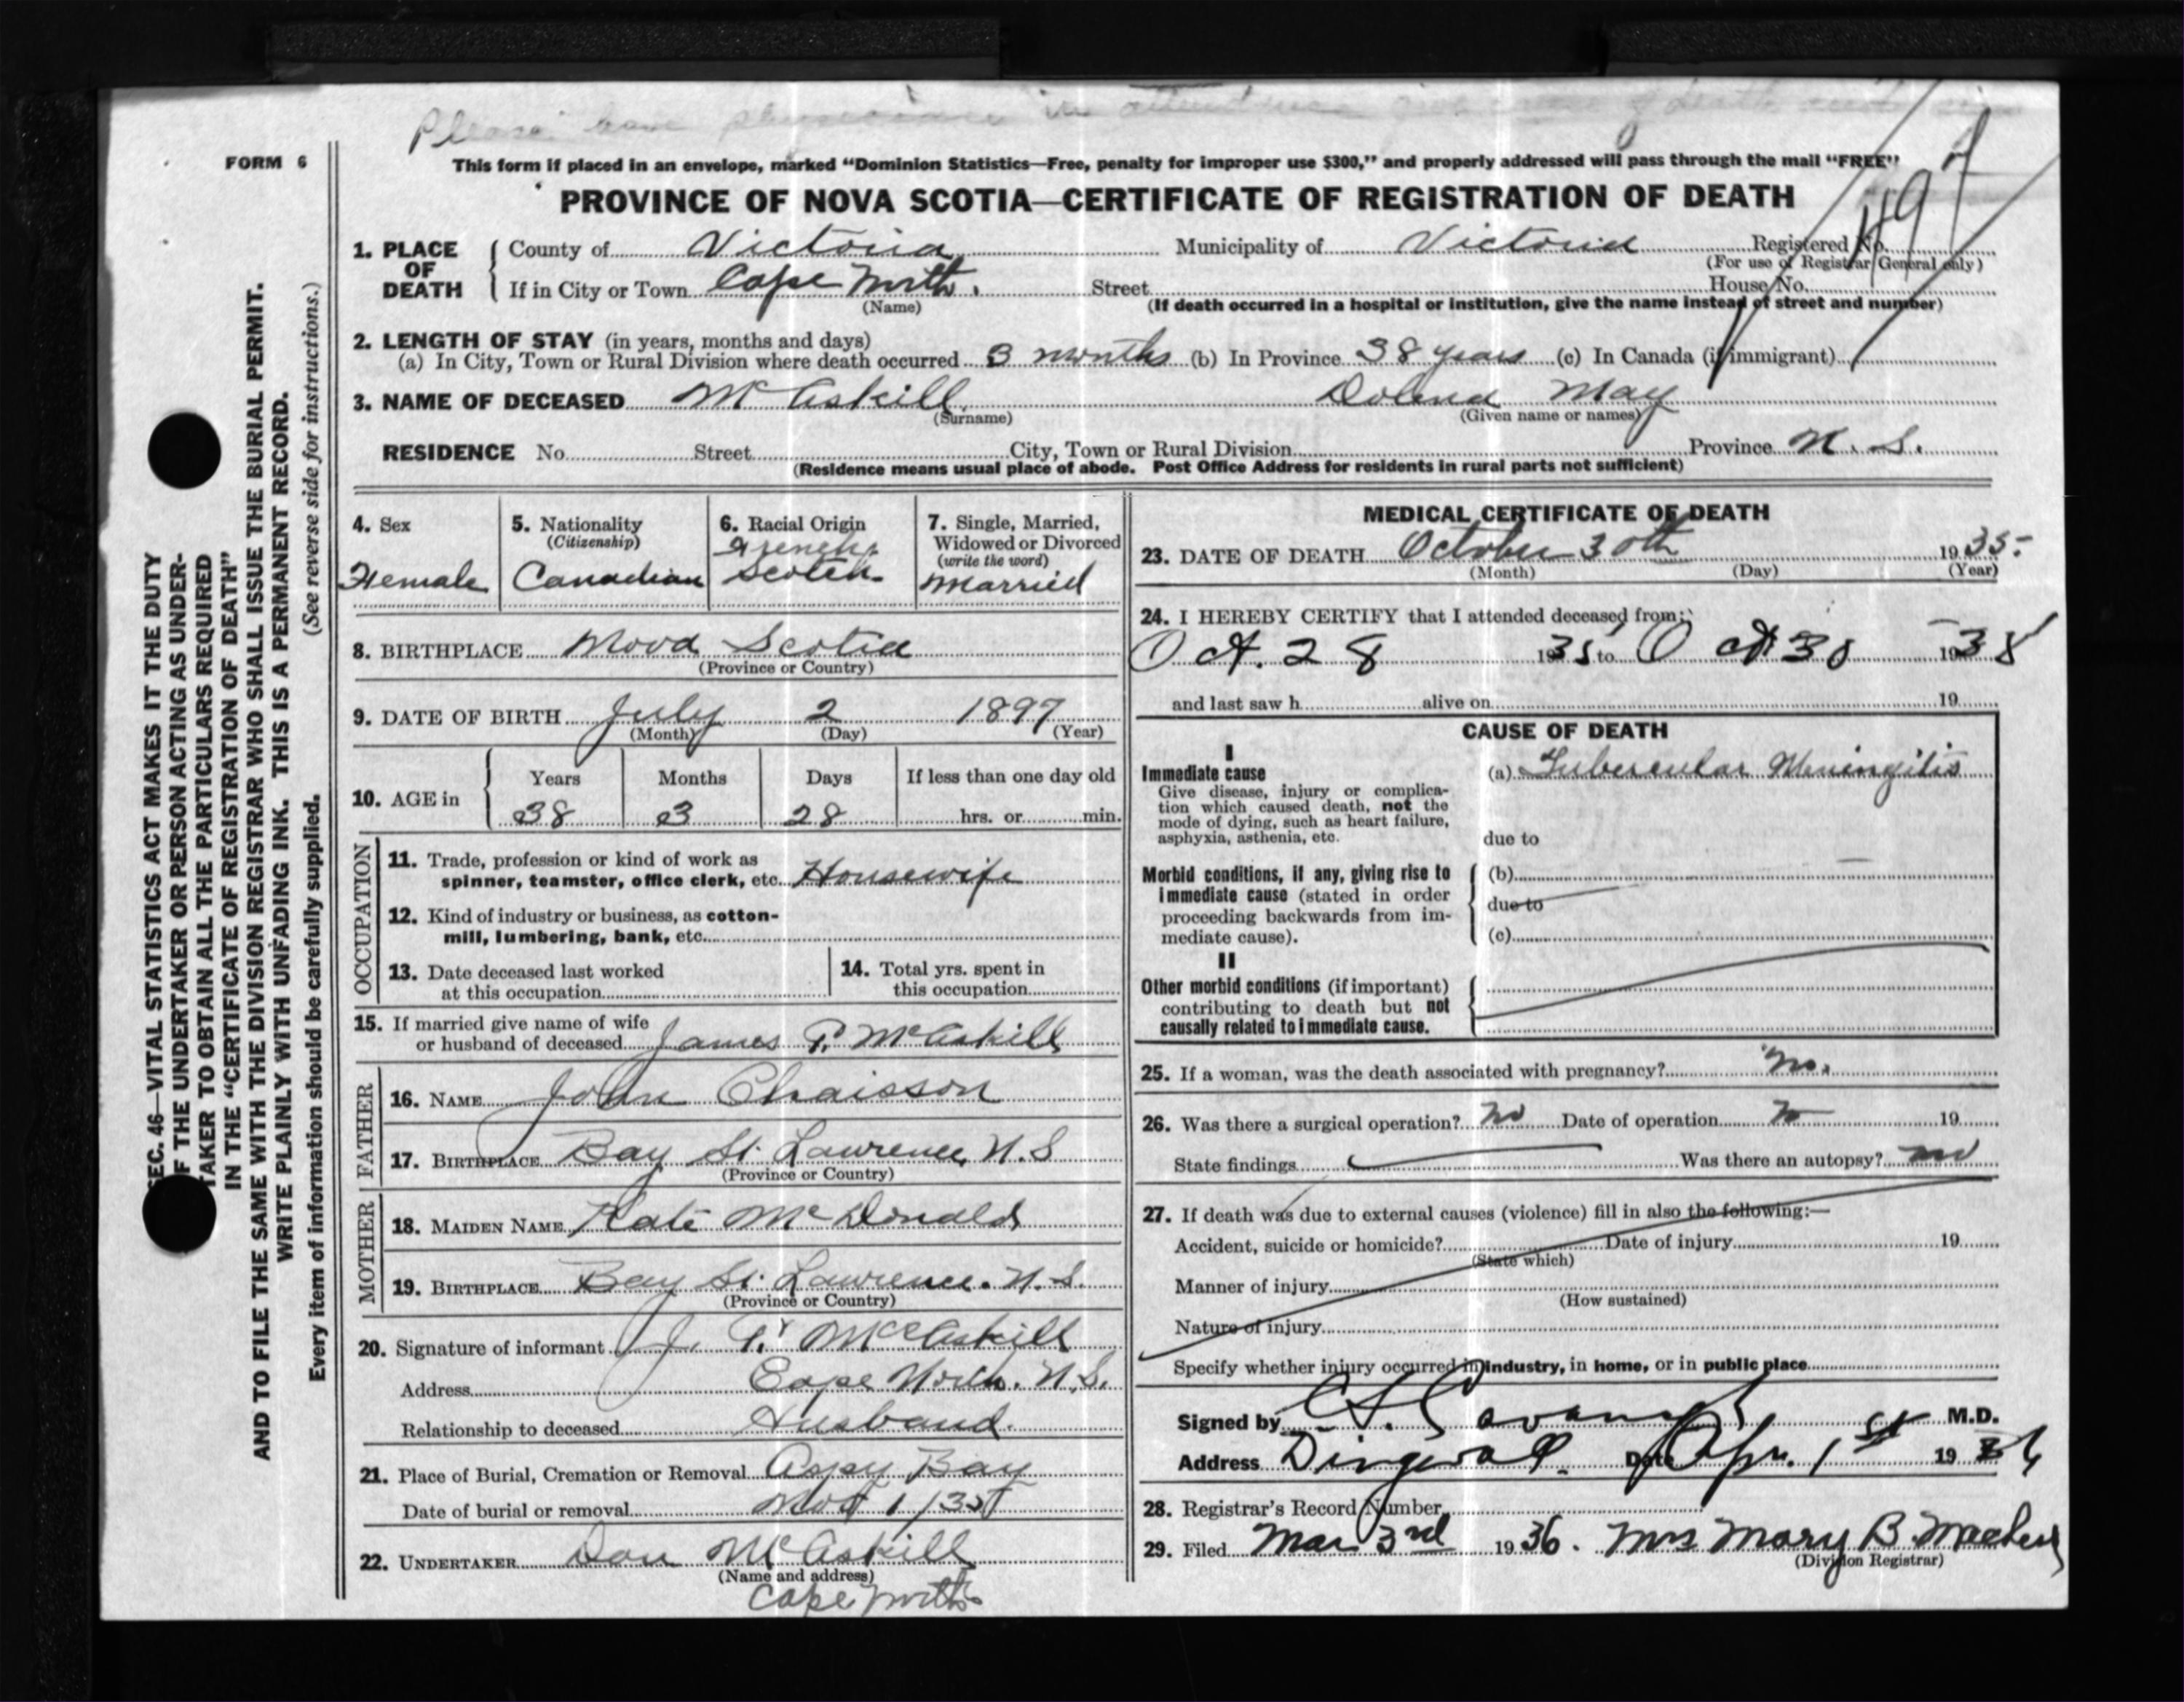 Please have physician in attendance give cause of death and sign
FORM 6
This form if placed in an envelope, marked “Dominion Statistics—Free, penalty for improper use $300,” and properly addressed will pass through the mail “FREE”
PROVINCE OF NOVA SCOTIA—CERTIFICATE OF REGISTRATION OF DEATH
1. PLACE OF DEATH
County of Victoria Municipality of Victoria Registered No.
(For use of Registrar General only)
If in City or Town Cape North. Street House No.
(Name) (If death occurred in a hospital or institution, give the name instead of street and number)
2. LENGTH OF STAY (in years, months and days)
(a) In City, Town or Rural Division where death occurred 3 months (b) In Province 38 years (c) In Canada (if immigrant)
3. NAME OF DECEASED McAskill May
(Surname) (Given name or names)
RESIDENCE No. Street City, Town or Rural Division Province N. S.
(Residence means usual place of abode. Post Office Address for residents in rural parts not sufficient)
4. Sex
Female
5. Nationality
(Citizenship)
Canadian
6. Racial Origin
French
Scotch
7. Single, Married,
Widowed or Divorced
(write the word)
Married
8. BIRTHPLACE Nova Scotia
(Province or Country)
9. DATE OF BIRTH July 2 1897
(Month) (Day) (Year)
10. AGE in
Years Months Days If less than one day old
38 3 28 hrs. or min.
OCCUPATION
11. Trade, profession or kind of work as
spinner, teamster, office clerk, etc. Housewife
12. Kind of industry or business, as cotton-
mill, lumbering, bank, etc.
13. Date deceased last worked
at this occupation
14. Total yrs. spent in
this occupation
15. If married give name of wife
or husband of deceased James P. McAskill
FATHER
16. NAME John Chaisson
17. BIRTHPLACE Bay St. Lawrence, N.S
(Province or Country)
MOTHER
18. MAIDEN NAME Kate McDonald
19. BIRTHPLACE Bay St. Lawrence. N.S.
(Province or Country)
20. Signature of informant J. P. McAskill
Address Cape North. N.S.
Relationship to deceased Husband.
21. Place of Burial, Cremation or Removal Aspy Bay
Date of burial or removal
22. UNDERTAKER Dan McAskill
(Name and address)
Cape North
MEDICAL CERTIFICATE OF DEATH
23. DATE OF DEATH October 30th 1935.
(Month) (Day) (Year)
24. I HEREBY CERTIFY that I attended deceased from:
Oct. 28 1935 to Oct 30 1938
and last saw h alive on 19
CAUSE OF DEATH
I
Immediate cause
Give disease, injury or complica-
tion which caused death, not the
mode of dying, such as heart failure,
asphyxia, asthenia, etc.
(a) Tubercular Meningitis
due to
Morbid conditions, if any, giving rise to
immediate cause (stated in order
proceeding backwards from im-
mediate cause).
(b)
due to
(c)
II
Other morbid conditions (if important)
contributing to death but not
causally related to immediate cause.
25. If a woman, was the death associated with pregnancy? No.
26. Was there a surgical operation? No Date of operation No 19
State findings Was there an autopsy? no
27. If death was due to external causes (violence) fill in also the following:—
Accident, suicide or homicide? Date of injury 19
(State which)
Manner of injury
(How sustained)
Nature of injury
Specify whether injury occurred in industry, in home, or in public place
Signed by M.D.
Address Dingwall. Date Apr. 1st 1936
28. Registrar's Record Number
29. Filed Mar 3rd 1936. Mrs Mary B.
(Division Registrar)
SEC. 46—VITAL STATISTICS ACT MAKES IT THE DUTY
OF THE UNDERTAKER OR PERSON ACTING AS UNDER-
TAKER TO OBTAIN ALL THE PARTICULARS REQUIRED
IN THE “CERTIFICATE OF REGISTRATION OF DEATH”
AND TO FILE THE SAME WITH THE DIVISION REGISTRAR WHO SHALL ISSUE THE BURIAL PERMIT.
WRITE PLAINLY WITH UNFADING INK. THIS IS A PERMANENT RECORD.
Every item of information should be carefully supplied. (See reverse side for instructions.)